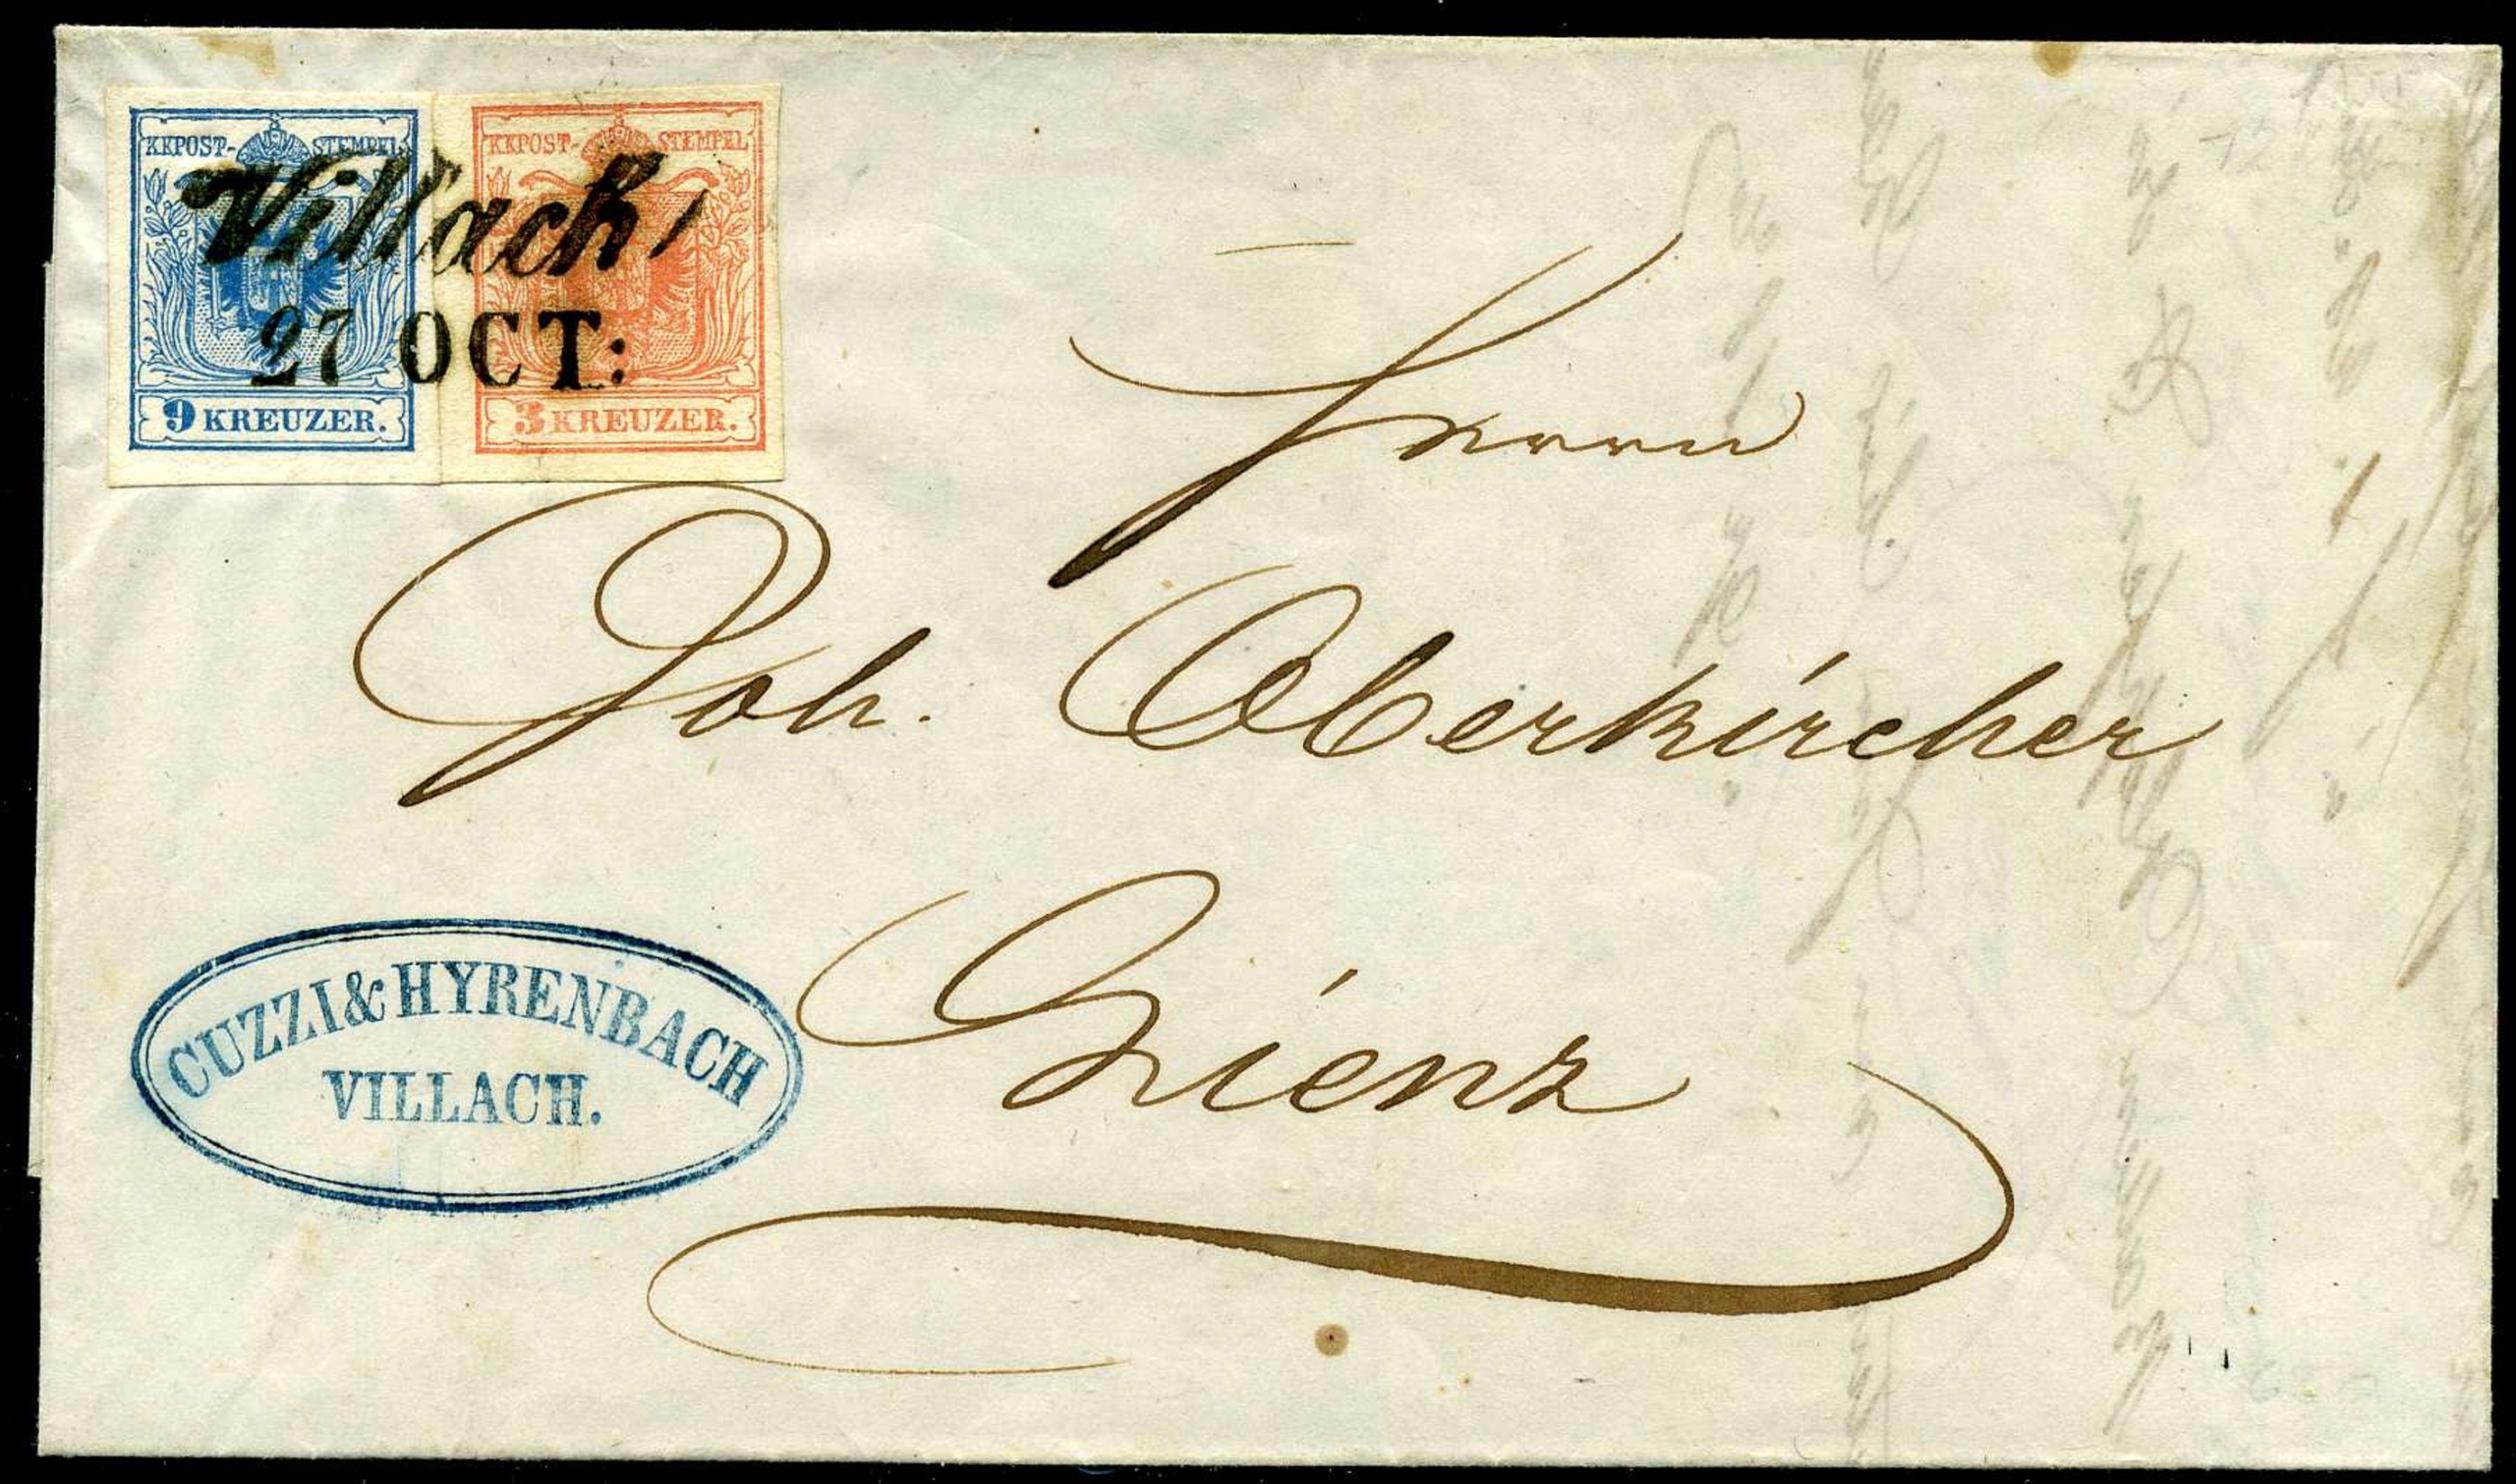 KKPOST-STEMPEL
9 KREUZER.
KKPOST-STEMPEL
3 KREUZER.
Villach
27 OCT:
Herrn
Joh. Oberkircher
Lienz
CUZZI & HYRENBACH
VILLACH.